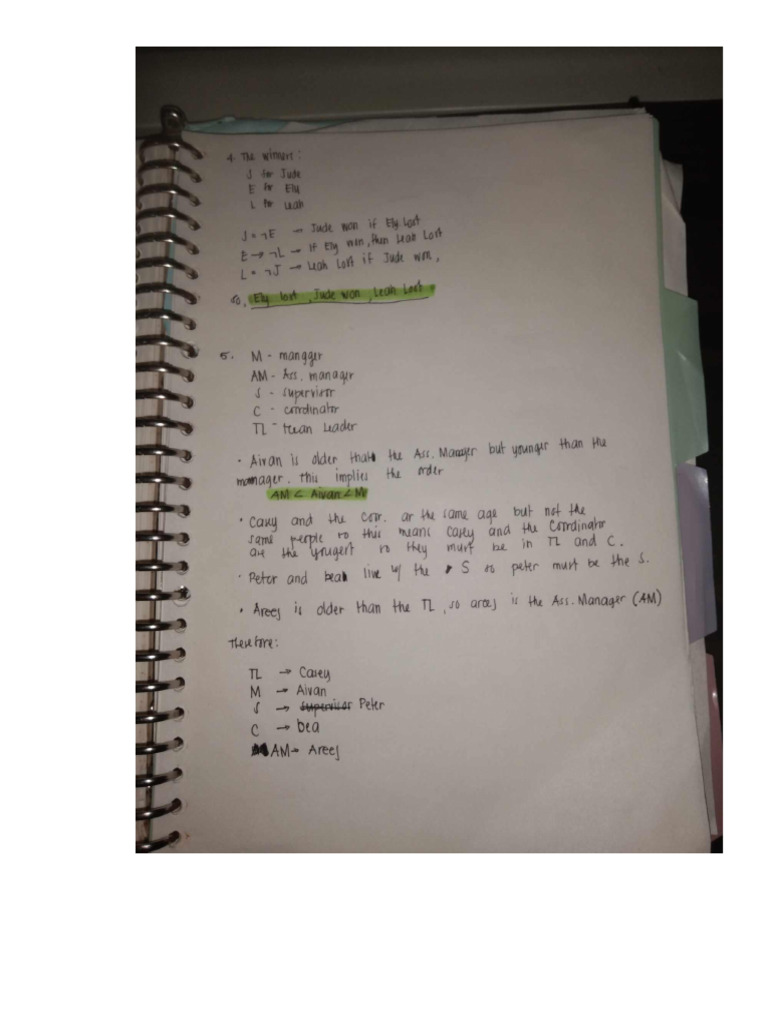 4. The winners:
J for Jude
E for Ely
L for Leah
J = ¬E → Jude won if Ely Lost
E → ¬L → If Ely won, then Leah Lost
L = ¬J → Leah Lost if Jude won,
so, Ely lost, Jude won, Leah Lost
5. M - mangger
AM - Ass. manager
S - supervisor
C - coordinator
TL - Team Leader
• Aivan is older that the Ass. Manager but younger than the
manager. this implies the order
AM < Aivan < M
• Casey and the Coor. ar the same age but not the
same people so this means Casey and the Coordinator
are the youngest so they must be in TL and C.
• Peter and bea live w/ the S so peter must be the S.
• Areej is older than the TL, so areej is the Ass. Manager (AM)
Therefore:
TL → Casey
M → Aivan
S → supervisor Peter
C → bea
AM → Areej